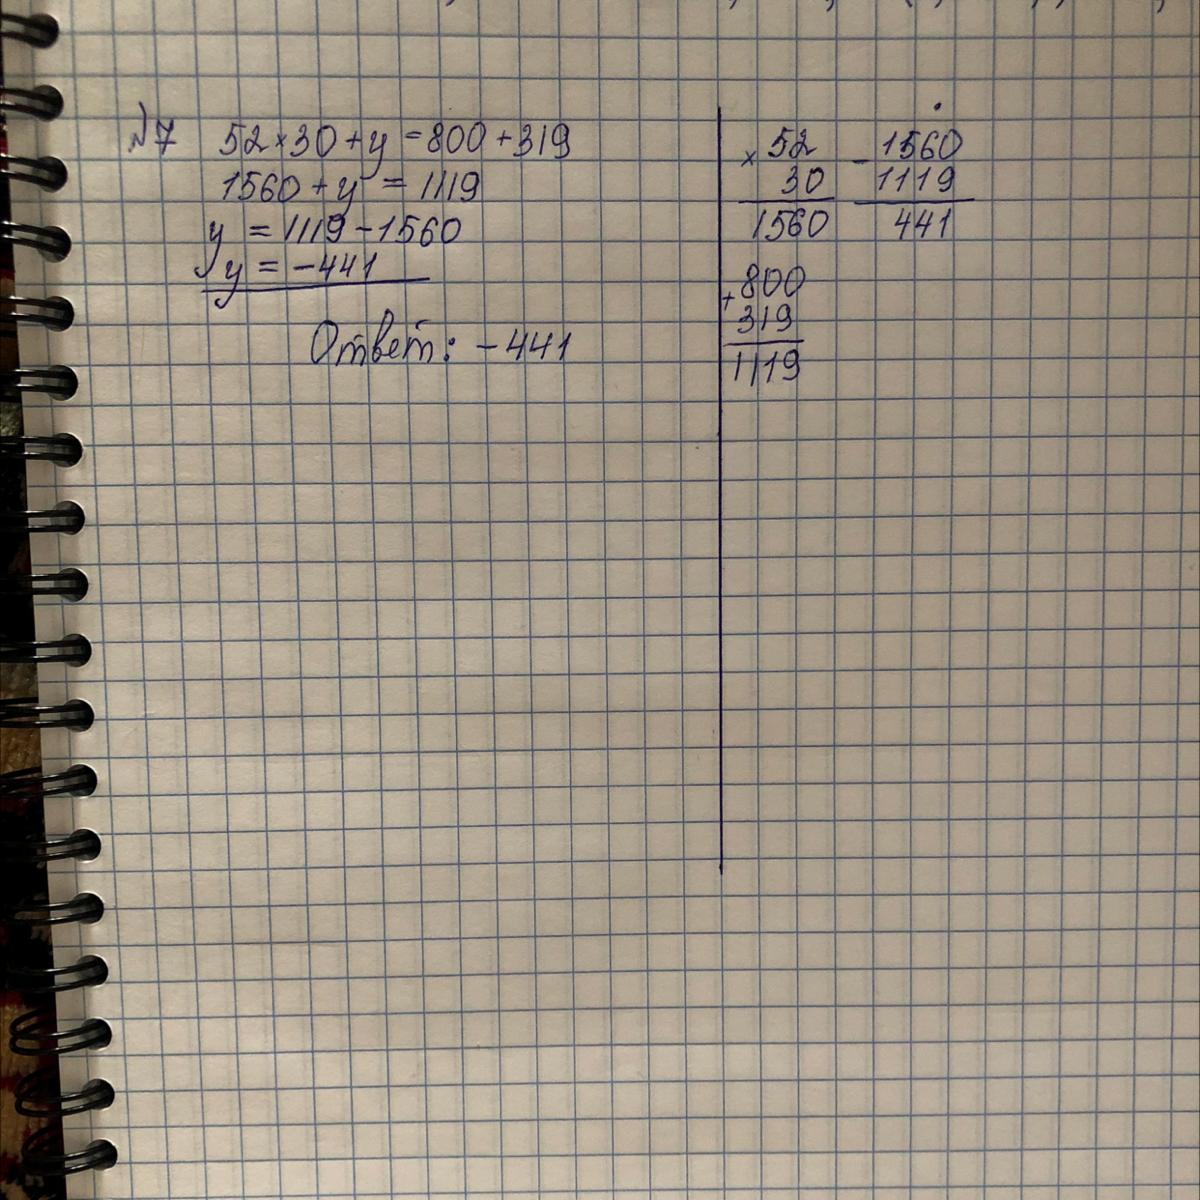 №7 52×30+y=800+319
1560+y=1119
y=1119-1560
y=-441
Ответ: -441
×52
30
1560
-1560
1119
441
+800
319
1119